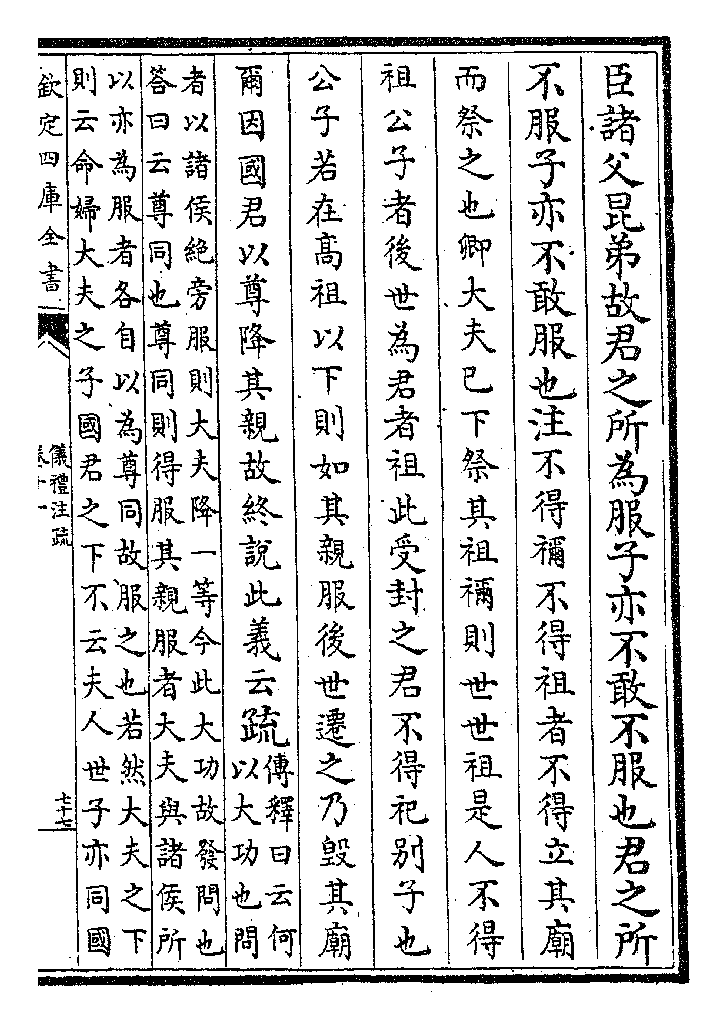 臣諸父昆弟故君之所為服子亦不敢不服也君之所
不服子亦不敢服也注不得禰不得祖者不得立其廟
而祭之也卿大夫已下祭其祖禰則世世祖是人不得
祖公子者後世為君者祖此受封之君不得祀别子也
公子若在高祖以下則如其親服後世遷之乃毀其廟
爾因國君以尊降其親故終說此義云疏
傳釋曰云何
以大功也問
者以諸侯絶旁服則大夫降一等今此大功故發問也
答曰云尊同也尊同則得服其親服者大夫與諸侯所
以亦為服者各自以為尊同故服之也若然大夫之下
則云命婦大夫之子國君之下不云夫人世子亦同國
欽定四庫全書
儀禮注疏
卷十一
七十七